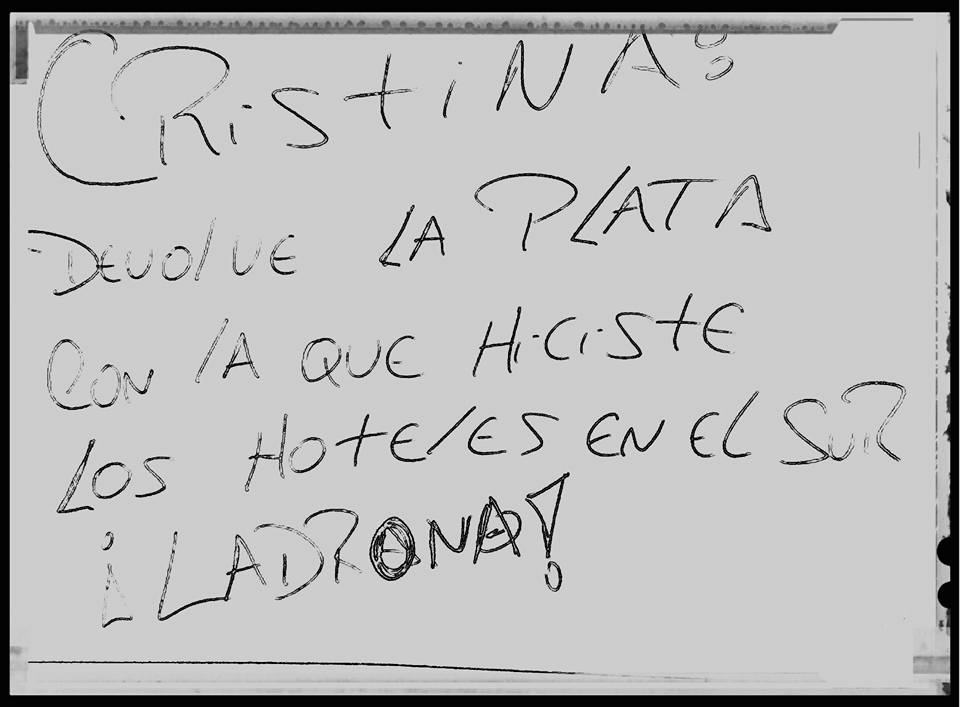 CRiStiNA:
DEVOLVE LA PLATA
CON LA QUE HiCiStE
LOS HOtELES EN EL SUR
¡LADRONA!